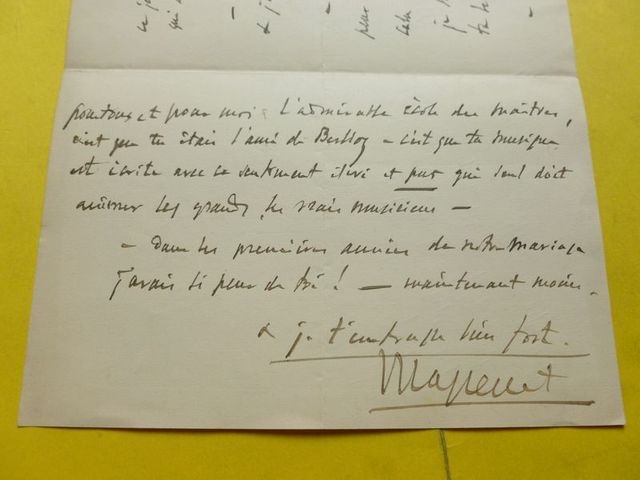 pour tous et pour moi l'admirable école des maîtres,
c'est que tu étais l'ami de Berlioz – c'est que ta musique
est écrite avec ce sentiment élevé et pur qui seul doit
animer les grands, les vrais musiciens –
– Dans les premières années de notre mariage
j'avais si peur de toi ! – maintenant moins.
& je t'embrasse bien fort.
Massenet